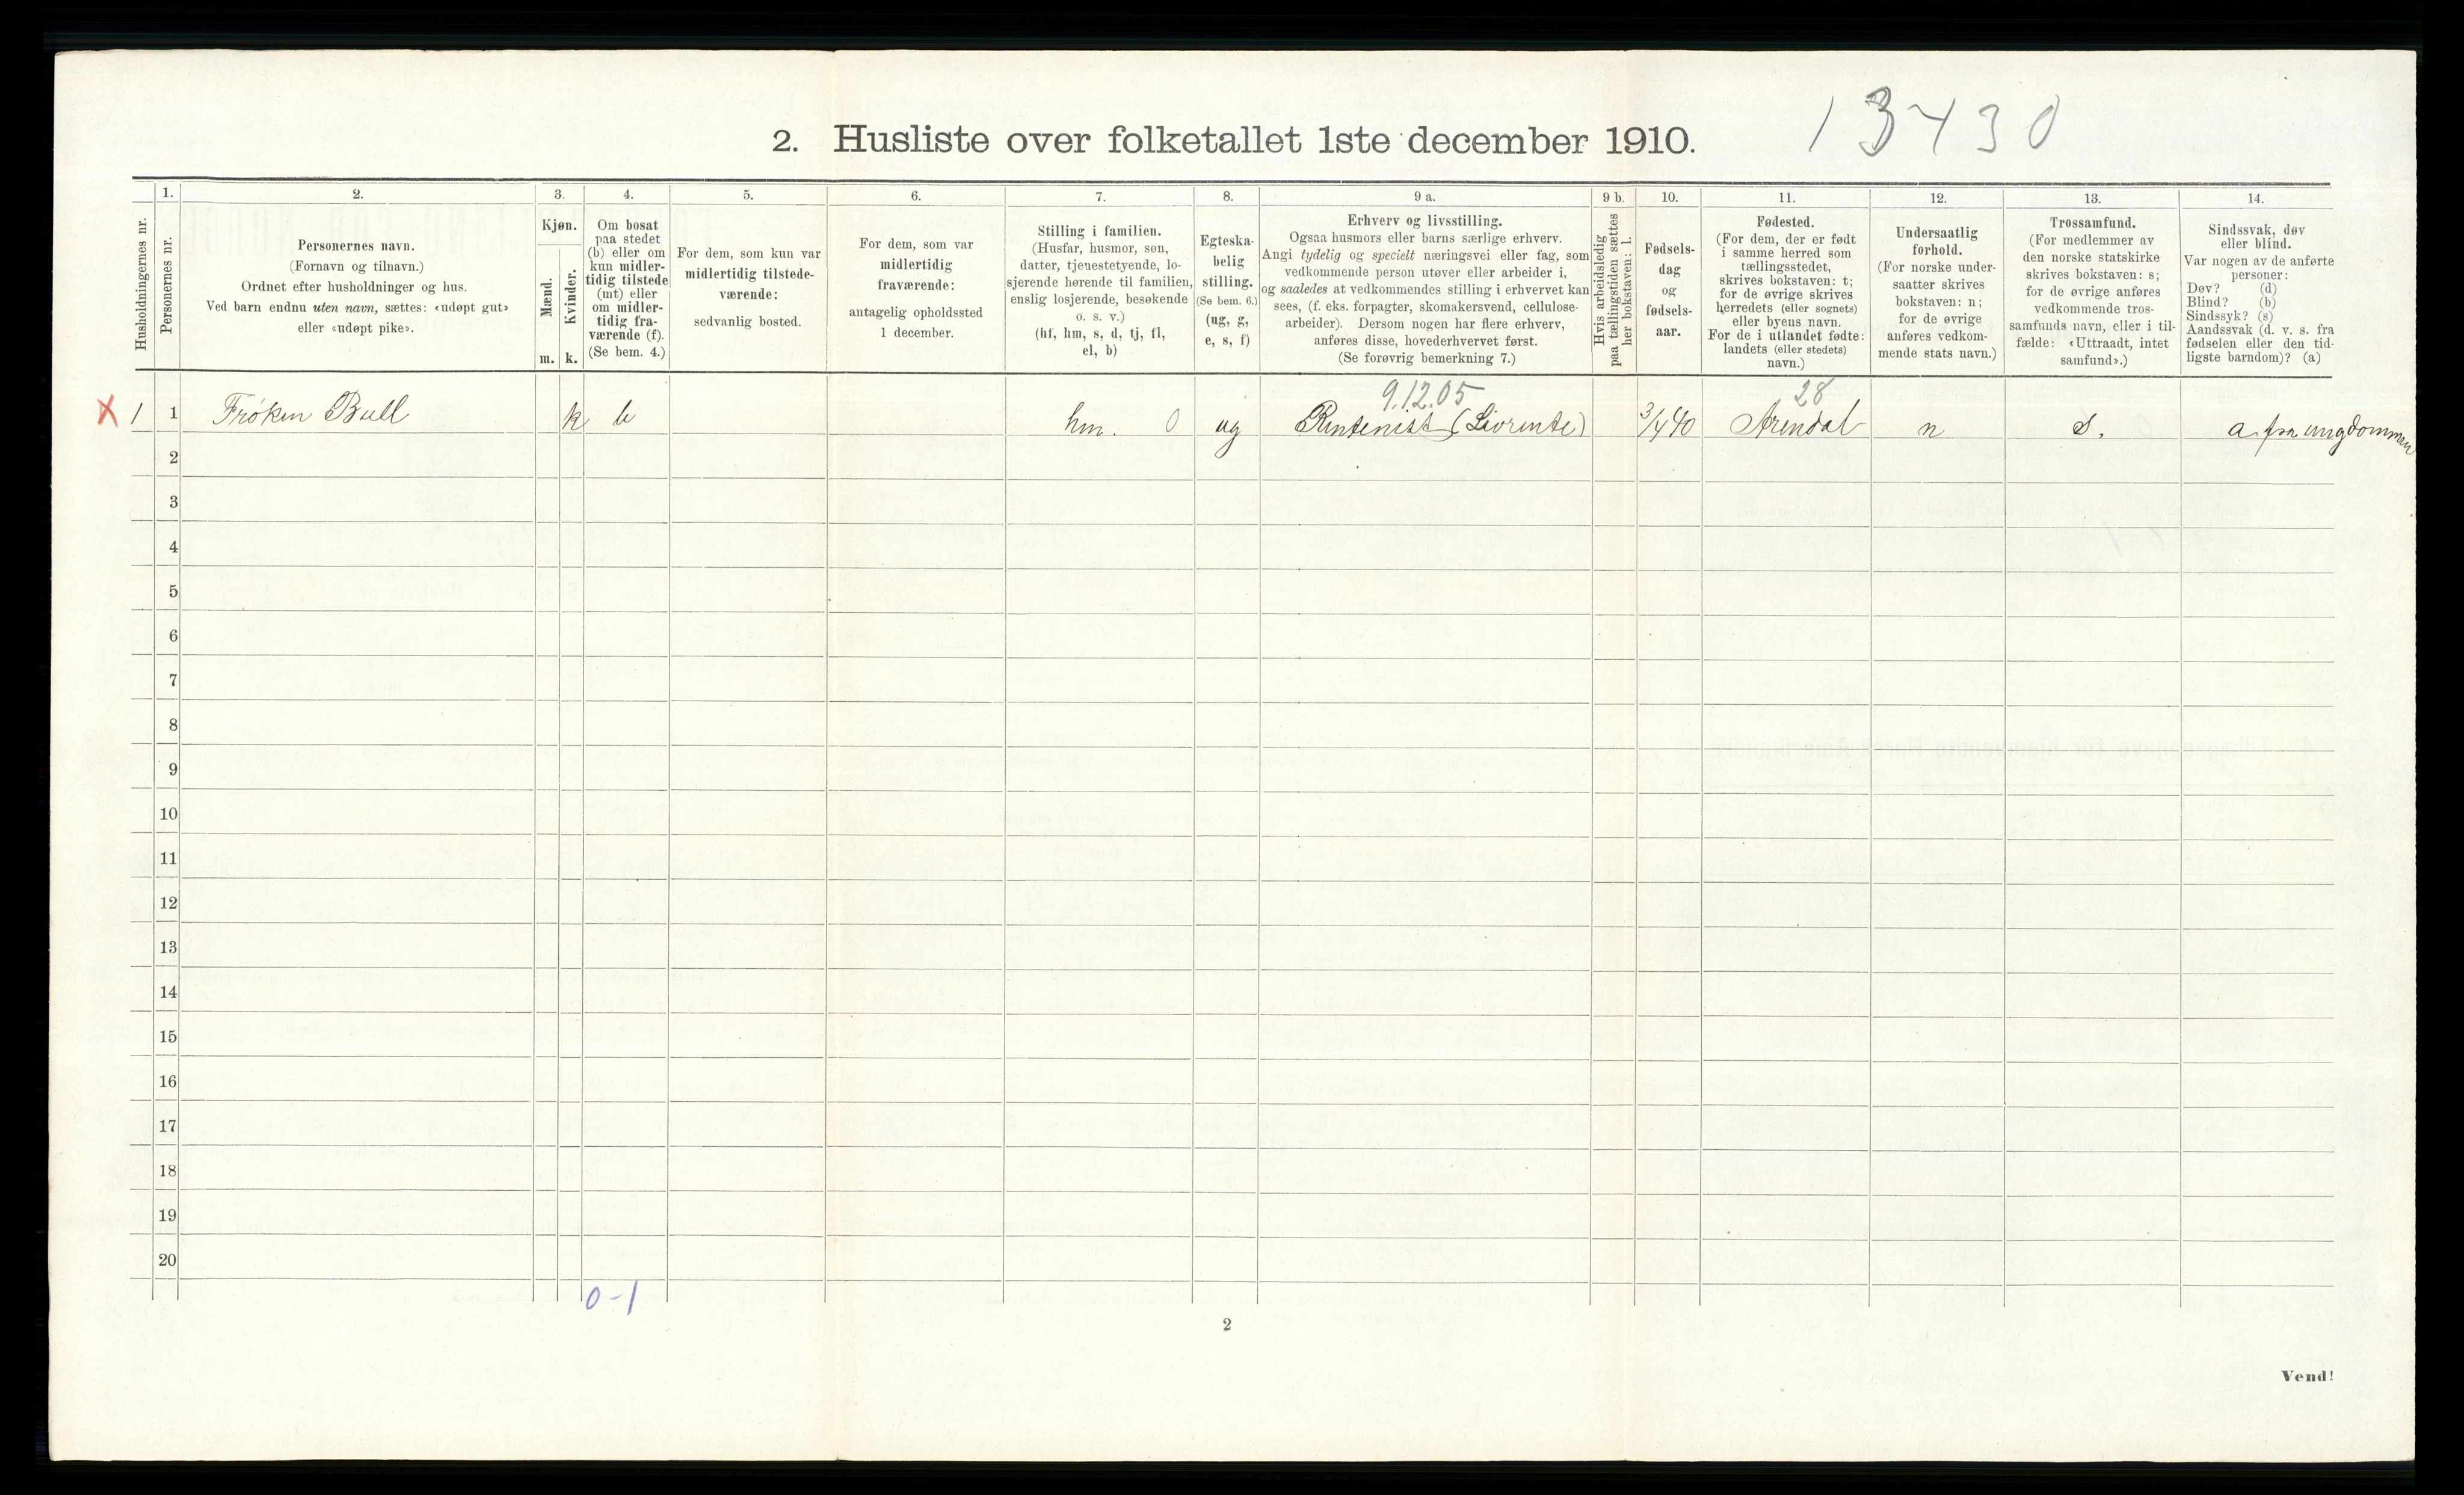 13430
2. Husliste over folketallet 1ste december 1910.
Husholdningernes nr.
1.
Personernes nr.
2.
Personernes navn.
(Fornavn og tilnavn.)
Ordnet efter husholdninger og hus.
Ved barn endnu uten navn, sættes: «udøpt gut»
eller «udøpt pike».
3.
Kjøn.
Mænd.
Kvinder.
m. k.
4.
Om bosat
paa stedet
(b) eller om
kun midler-
tidig tilstede
(mt) eller
om midler-
tidig fra-
værende (f).
(Se bem. 4.)
5.
For dem, som kun var
midlertidig tilstede-
værende:
sedvanlig bosted.
6.
For dem, som var
midlertidig
fraværende:
antagelig opholdssted
1 december.
7.
Stilling i familien.
(Husfar, husmor, søn,
datter, tjenestetyende, lo-
sjerende hørende til familien,
enslig losjerende, besøkende
o. s. v.)
(hf, hm, s, d, tj, fl,
el, b)
8.
Egteska-
belig
stilling.
(Se bem. 6.)
(ug, g,
e, s, f)
9 a.
Erhverv og livsstilling.
Ogsaa husmors eller barns særlige erhverv.
Angi tydelig og specielt næringsvei eller fag, som
vedkommende person utøver eller arbeider i,
og saaledes at vedkommendes stilling i erhvervet kan
sees, (f. eks. forpagter, skomakersvend, cellulose-
arbeider). Dersom nogen har flere erhverv,
anføres disse, hovederhvervet først.
(Se forøvrig bemerkning 7.)
9 b.
Hvis arbeidsledig
paa tællingstiden sættes
her bokstaven: l.
10.
Fødsels-
dag
og
fødsels-
aar.
11.
Fødested.
(For dem, der er født
i samme herred som
tællingsstedet,
skrives bokstaven: t;
for de øvrige skrives
herredets (eller sognets)
eller byens navn.
For de i utlandet fødte:
landets (eller stedets)
navn.)
12.
Undersaatlig
forhold.
(For norske under-
saatter skrives
bokstaven: n;
for de øvrige
anføres vedkom-
mende stats navn.)
13.
Trossamfund.
(For medlemmer av
den norske statskirke
skrives bokstaven: s;
for de øvrige anføres
vedkommende tros-
samfunds navn, eller i til-
fælde: «Uttraadt, intet
samfund».)
14.
Sindssvak, døv
eller blind.
Var nogen av de anførte
personer:
Døv? (d)
Blind? (b)
Sindssyk? (s)
Aandssvak (d. v. s. fra
fødselen eller den tid-
ligste barndom)? (a)
9.12.05 28
X 1 1 Frøken Bull k b hm. 0 ug Rentenist (Livrente) 3/4 40 Arendal n s. a. fra ungdommen
2
3
4
5
6
7
8
9
10
11
12
13
14
15
16
17
18
19
20
0-1
2
Vend!